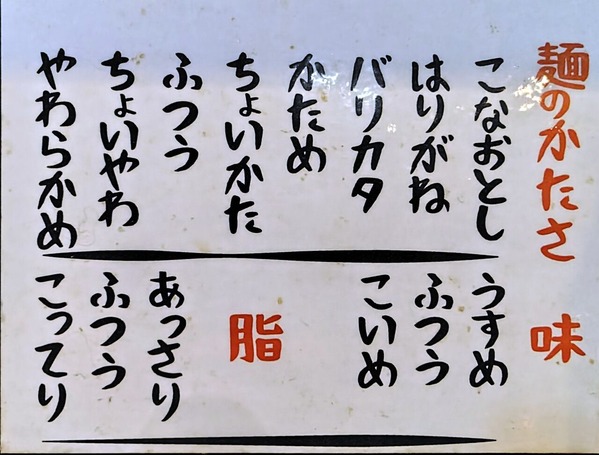 麺のかたさ
こなおとし
はりがね
バリカタ
かため
ちょいかた
ふつう
ちょいやわ
やわらかめ
味
うすめ
ふつう
こいめ
脂
あっさり
ふつう
こってり